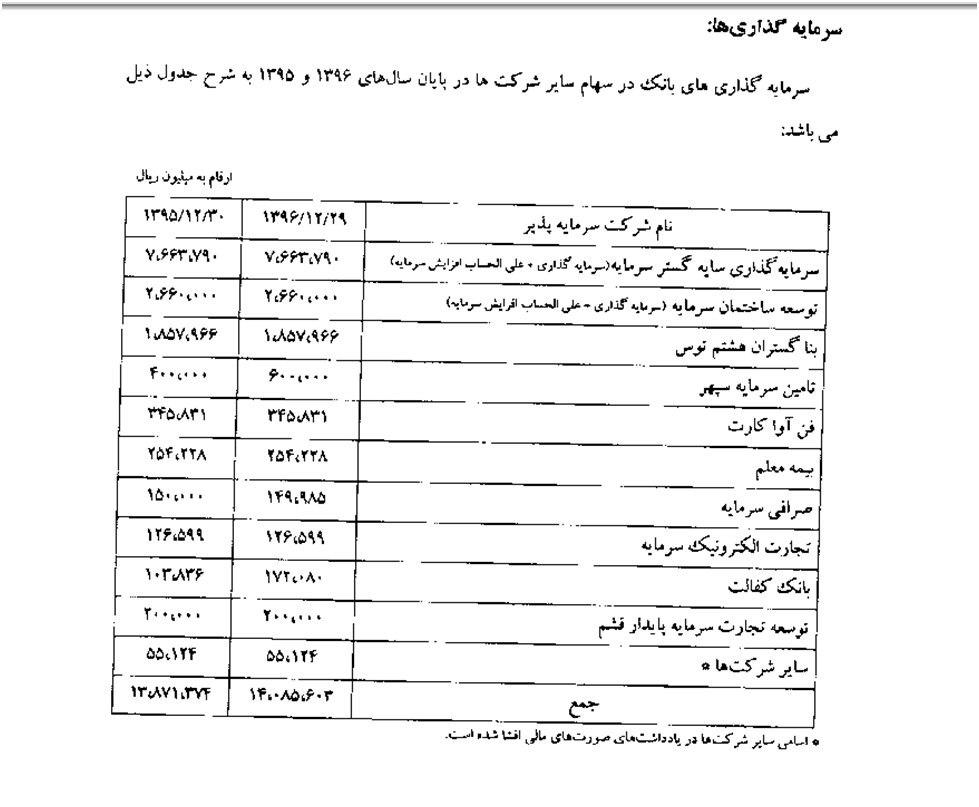 سرمایه گذاری‌ها:
سرمایه گذاری های بانک در سهام سایر شرکت ها در پایان سال‌های ۱۳۹۶ و ۱۳۹۵ به شرح جدول ذیل
می باشد:
ارقام به میلیون ریال
نام شرکت سرمایه پذیر ۱۳۹۶/۱۲/۲۹ ۱۳۹۵/۱۲/۳۰
سرمایه‌گذاری سایه گستر سرمایه(سرمایه گذاری + علی الحساب افزایش سرمایه) ۷،۶۶۳،۷۹۰ ۷،۶۶۳،۷۹۰
توسعه ساختمان سرمایه (سرمایه گذاری + علی الحساب افزایش سرمایه) ۲،۶۶۰،۰۰۰ ۲،۶۶۰،۰۰۰
بنا گستران هشتم توس ۱،۸۵۷،۹۶۶ ۱،۸۵۷،۹۶۶
تامین سرمایه سپهر ۶۰۰،۰۰۰ ۴۰۰،۰۰۰
فن آوا کارت ۳۴۵،۸۳۱ ۳۴۵،۸۳۱
بیمه معلم ۲۵۴،۲۲۸ ۲۵۴،۲۲۸
صرافی سرمایه ۱۴۹،۹۸۵ ۱۵۰،۰۰۰
تجارت الکترونیک سرمایه ۱۲۶،۵۹۹ ۱۲۶،۵۹۹
بانک کفالت ۱۷۲،۰۸۰ ۱۰۳،۸۳۶
توسعه تجارت سرمایه پایدار قشم ۲۰۰،۰۰۰ ۲۰۰،۰۰۰
سایر شرکت‌ها * ۵۵،۱۲۴ ۵۵،۱۲۴
جمع ۱۴،۰۸۵،۶۰۳ ۱۳،۸۷۱،۳۷۴
* اسامی سایر شرکت‌ها در یادداشت‌های صورت‌های مالی افشا شده است.